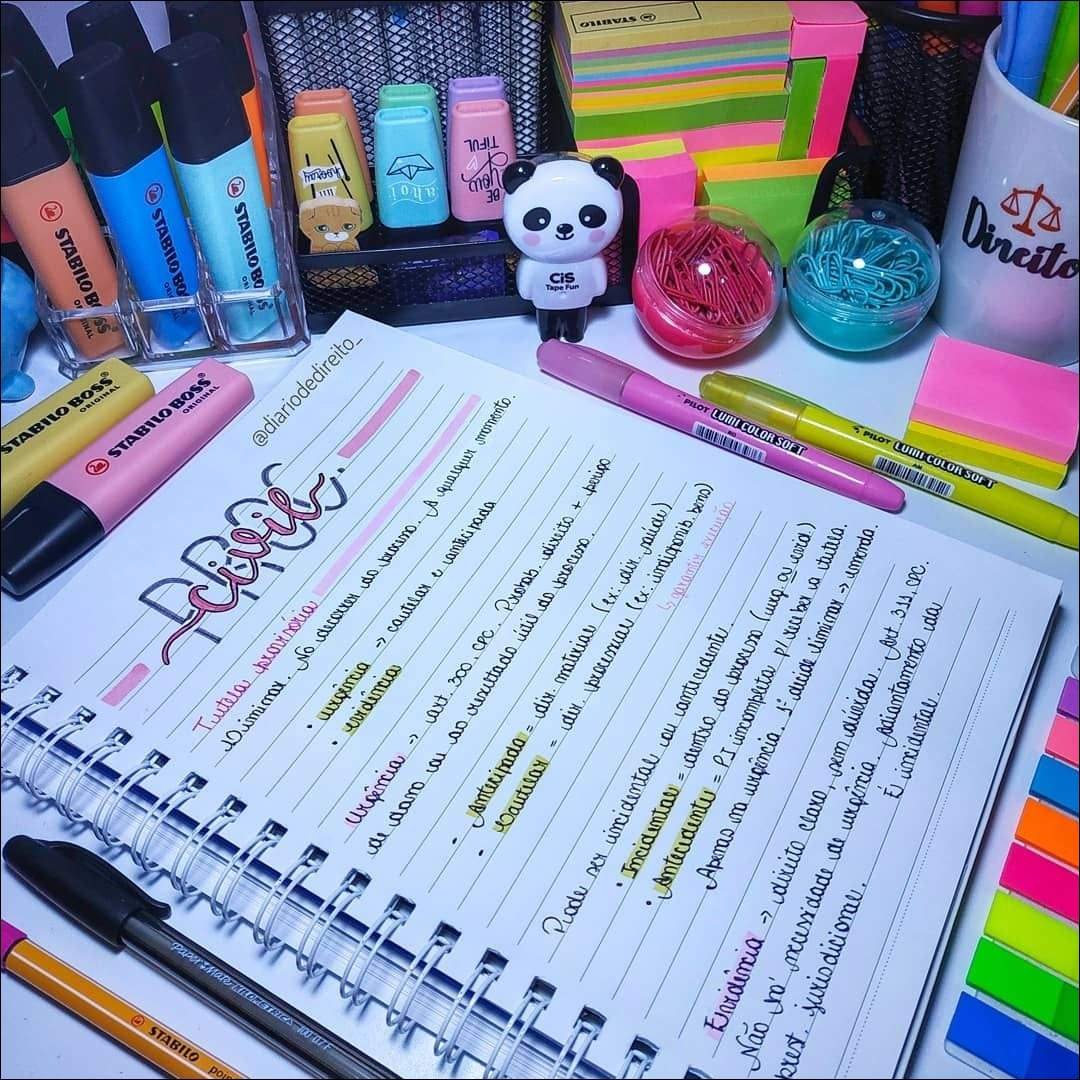 STABILO BOSS
ORIGINAL
STABILO BOSS
ORIGINAL
STABILO BOSS
ORIGINAL
STABILO
BE
YOU
TIFUL
CiS
Tape Fun
Direito
STABILO BOSS
ORIGINAL
STABILO BOSS
ORIGINAL
PILOT LUMI COLOR SOFT
PILOT LUMI COLOR SOFT
@diariodedireito_
PROC.
civil
Tutela provisória
↳ Liminar. No decorrer do processo. A qualquer momento.
• Urgência -> cautelar e antecipada
• Evidência
Urgência -> art. 300, CPC. Probab. direito + perigo
de dano ou ao resultado útil do processo.
• Antecipada = dir. material (ex: dir. saúde)
• Cautelar = dir. processual (ex: indisponib. bens)
↳ garantir execução
Pode ser incidental ou antecedente.
• Incidental = dentro do processo (urg. ou evid.)
• Antecedente = PI incompleta p/ receber a tutela.
Apenas na urgência. 1º decide liminar -> emenda.
Evidência -> direito claro, sem dúvida. Art. 311, CPC.
Não há necessidade de urgência. Adiantamento da
prest. jurisdicional. É incidental.
Paper Mate KILOMETRICA 100
STABILO point